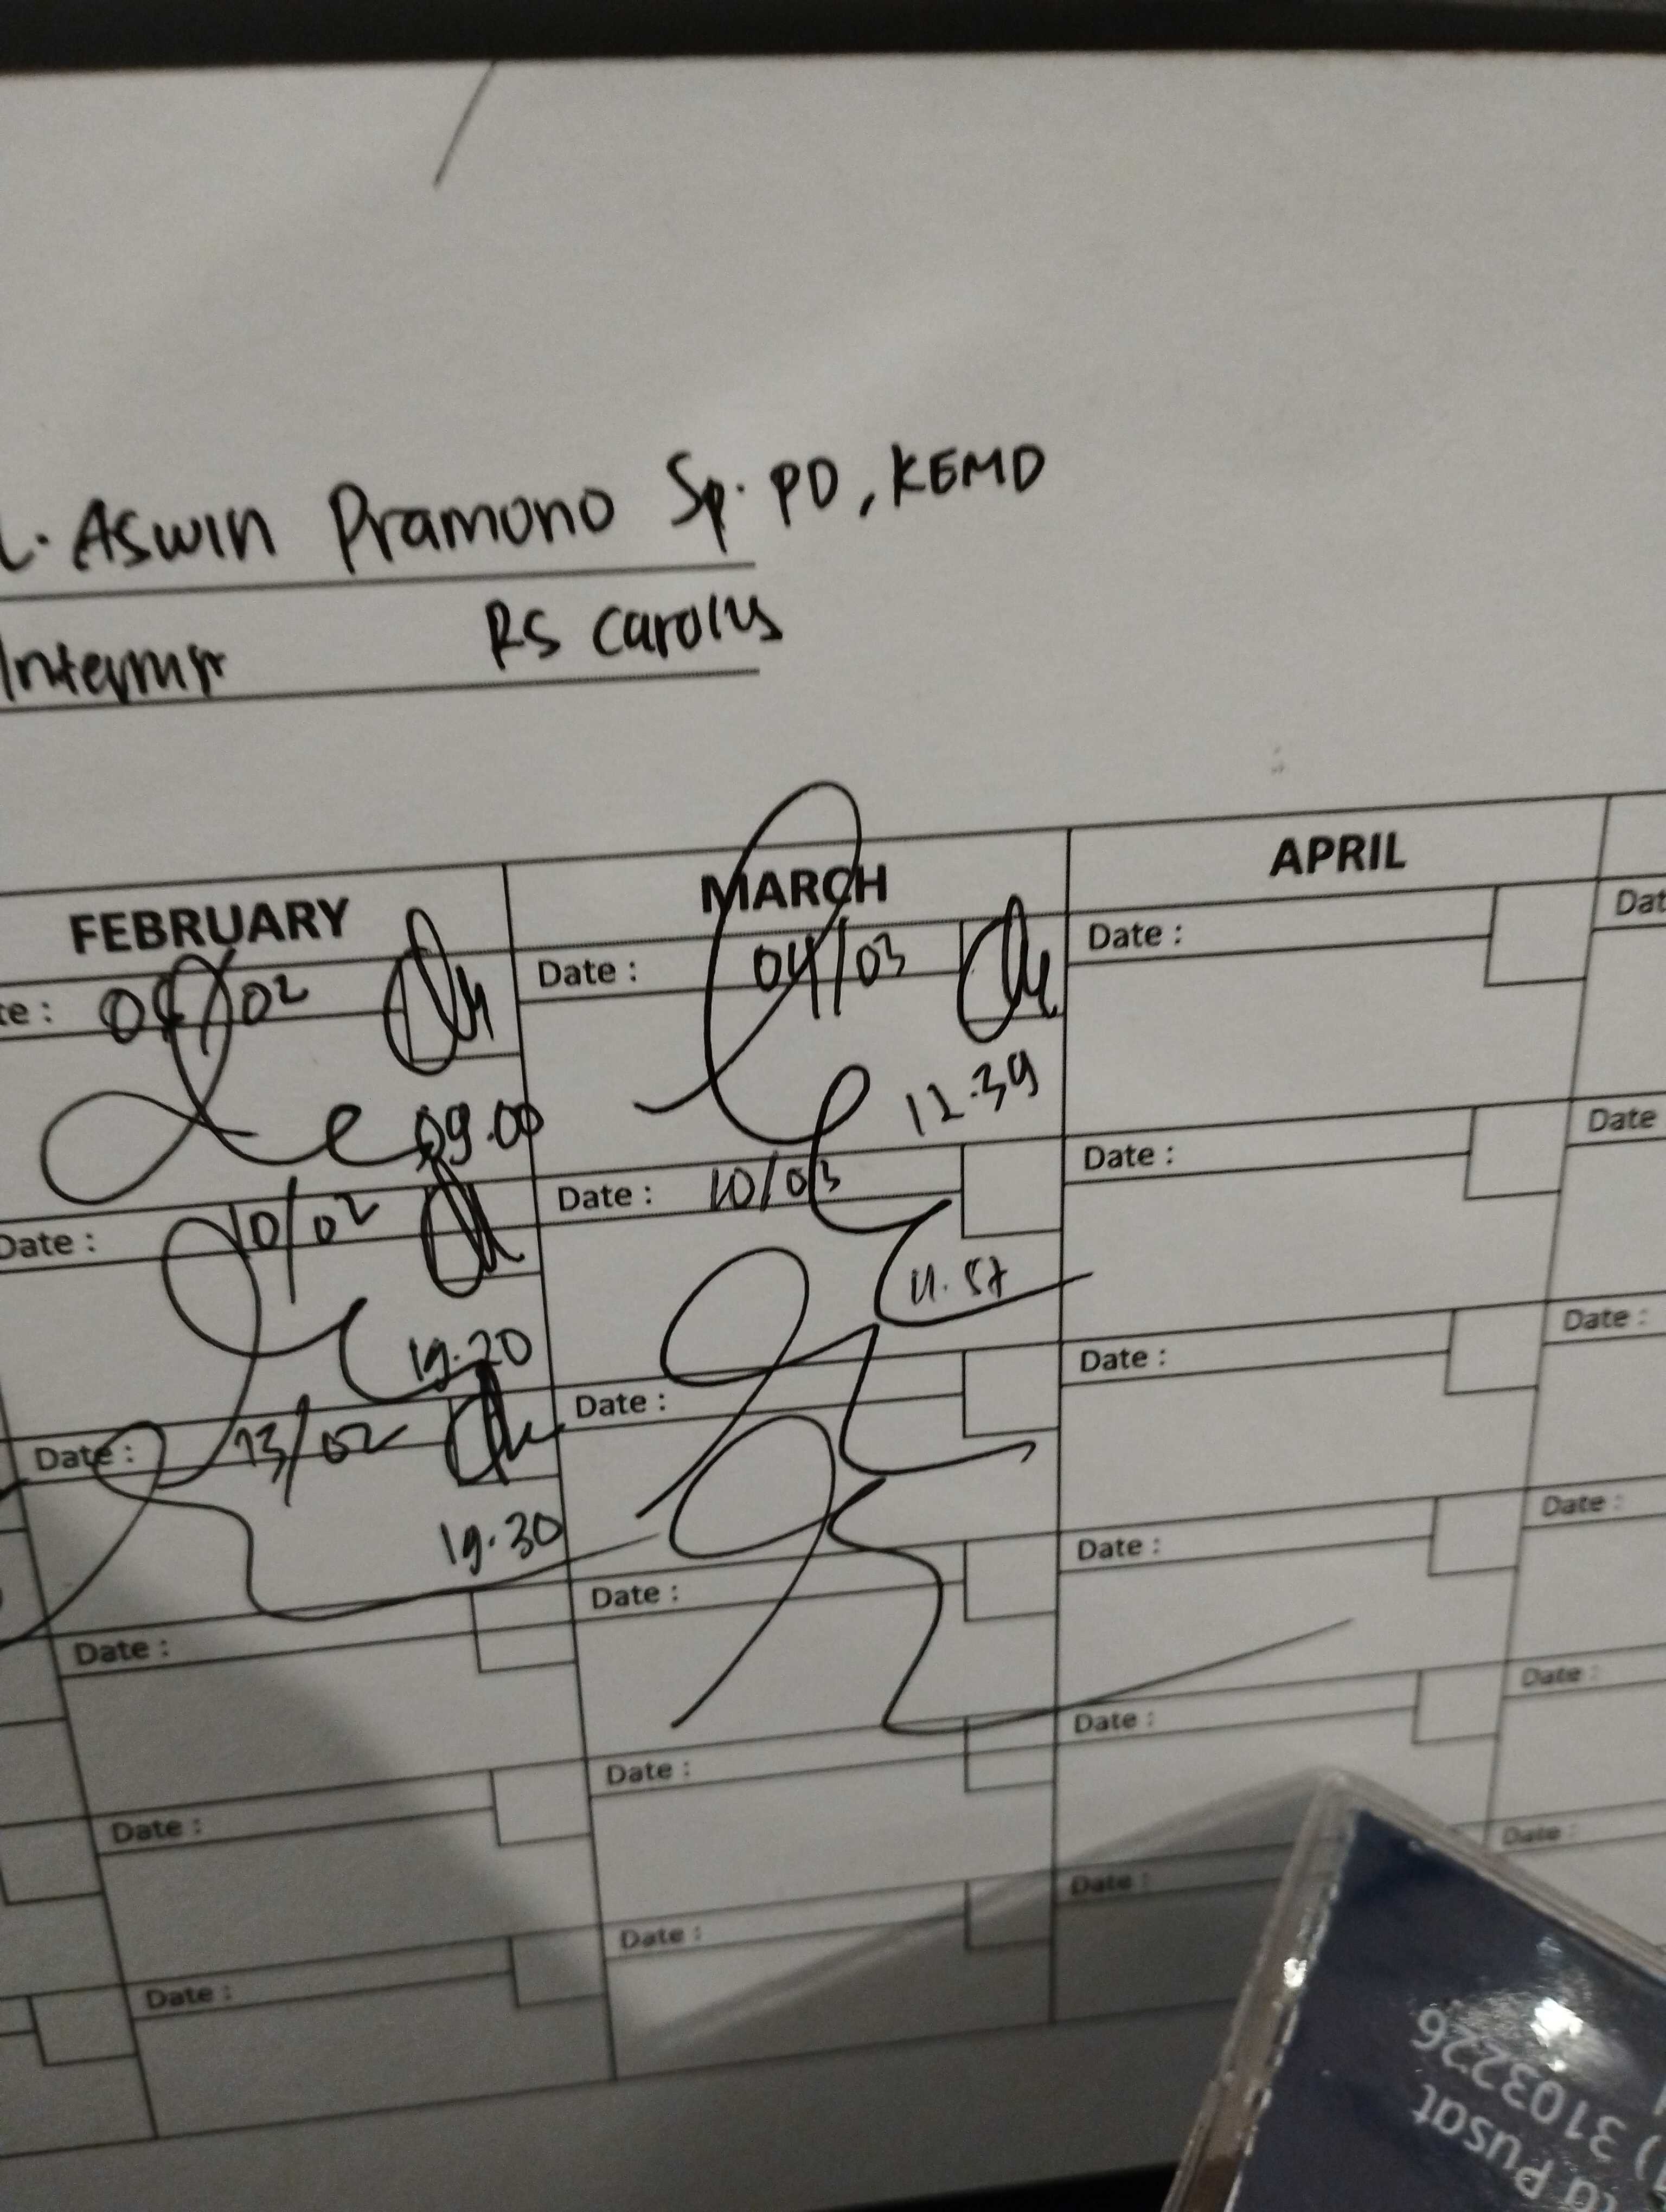 Aswin Pramono Sp. PD, KEMD
RS Carolus
FEBRUARY MARCH APRIL
Date : 04/03
Date :
09.00
12.39
Date : 10/02
Date : 10/03
Date :
Date
19.20
11.57
Date : 13/02
Date :
Date :
Date :
19.30
Date :
Date :
Date :
Date :
Date :
Date :
Date :
Date :
Date :
Date :
Date :
Date :
3103226
Pusat